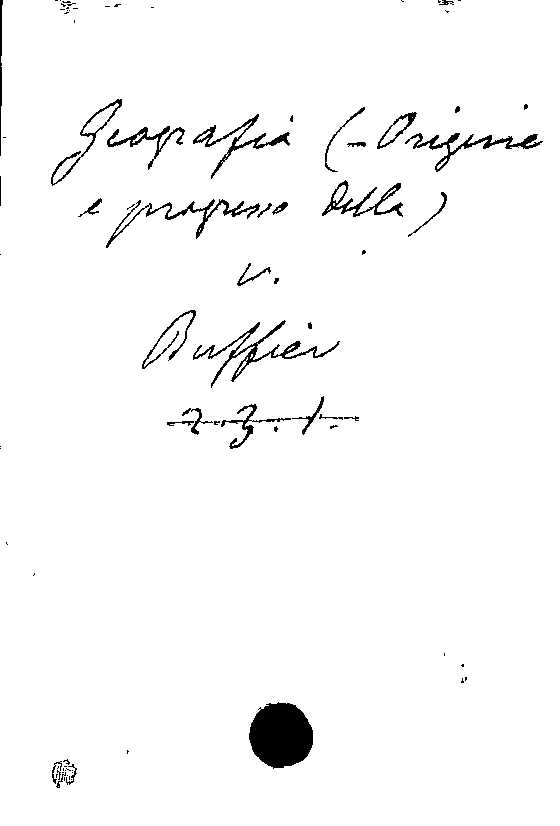 Geografia (- Origine
e progresso della)
v.
Buffier
2.3.1.